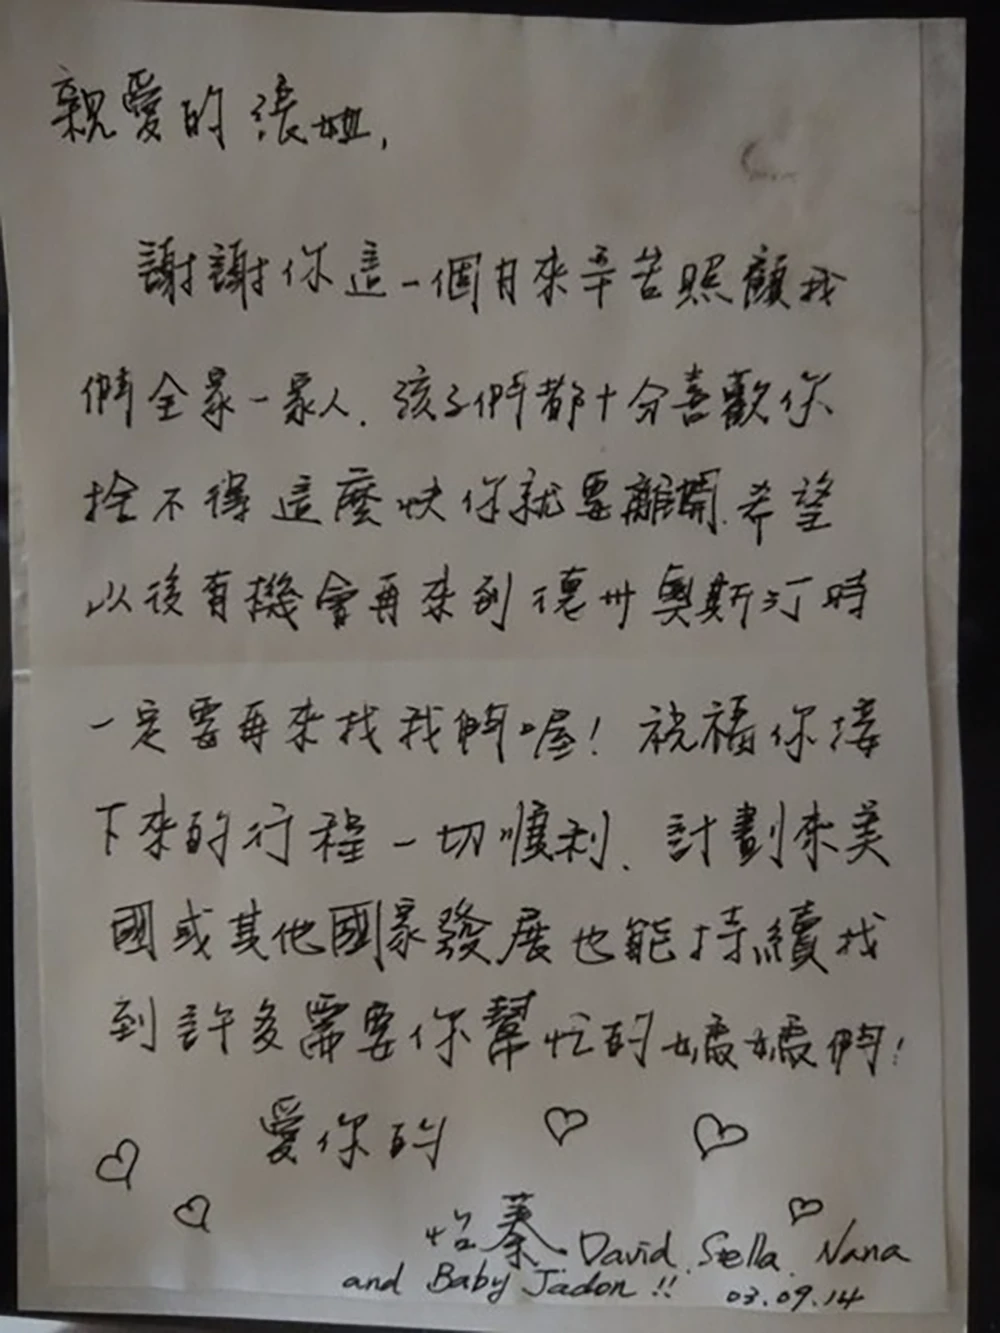 親愛的張姐,
謝謝你這一個月來辛苦照顧我
們全家一家人.孩子們都十分喜歡你
捨不得這麼快你就要離開.希望
以後有機會再來到德州奧斯汀時
一定要再來找我們喔!祝福你接
下來的行程一切順利.計劃來美
國或其他國家發展也能持續找
到許多需要你幫忙的媽媽們!
愛你的
怡蓁.David.Stella.Nana
and Baby Jadon!!
03.09.14